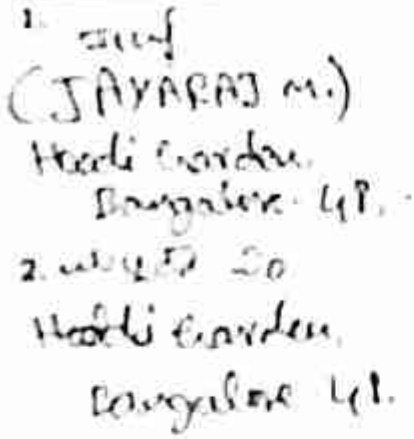 1.
(JAYARAJ M.)
Hoodi Garden.
Bangalore 48.
2.
Hoodi Garden.
Bangalore 48.